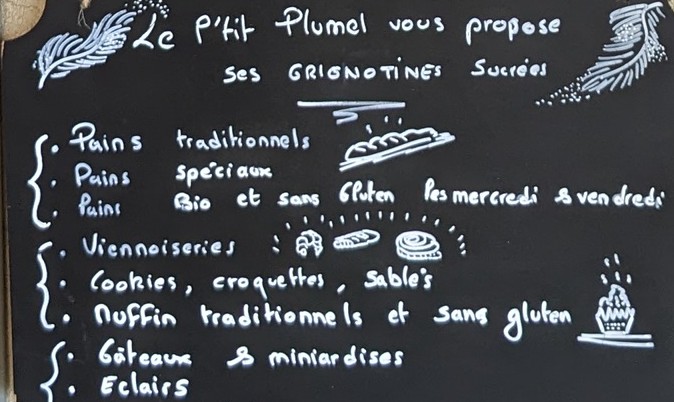 Le P'tit Plumel vous propose
ses GRIGNOTINES Sucrées
. Pains traditionnels
. Pains spéciaux
. Pains Bio et sans Gluten les mercredi & vendredi
. Viennoiseries
. Cookies, croquettes, Sablés
. Muffin traditionnels et sans gluten
. Gâteaux & miniardises
. Eclairs